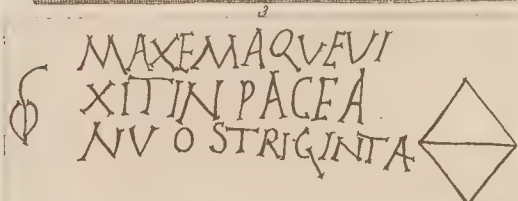 MAXEMAQVEVI
XITIN PACEA
NV O STRIGINTA